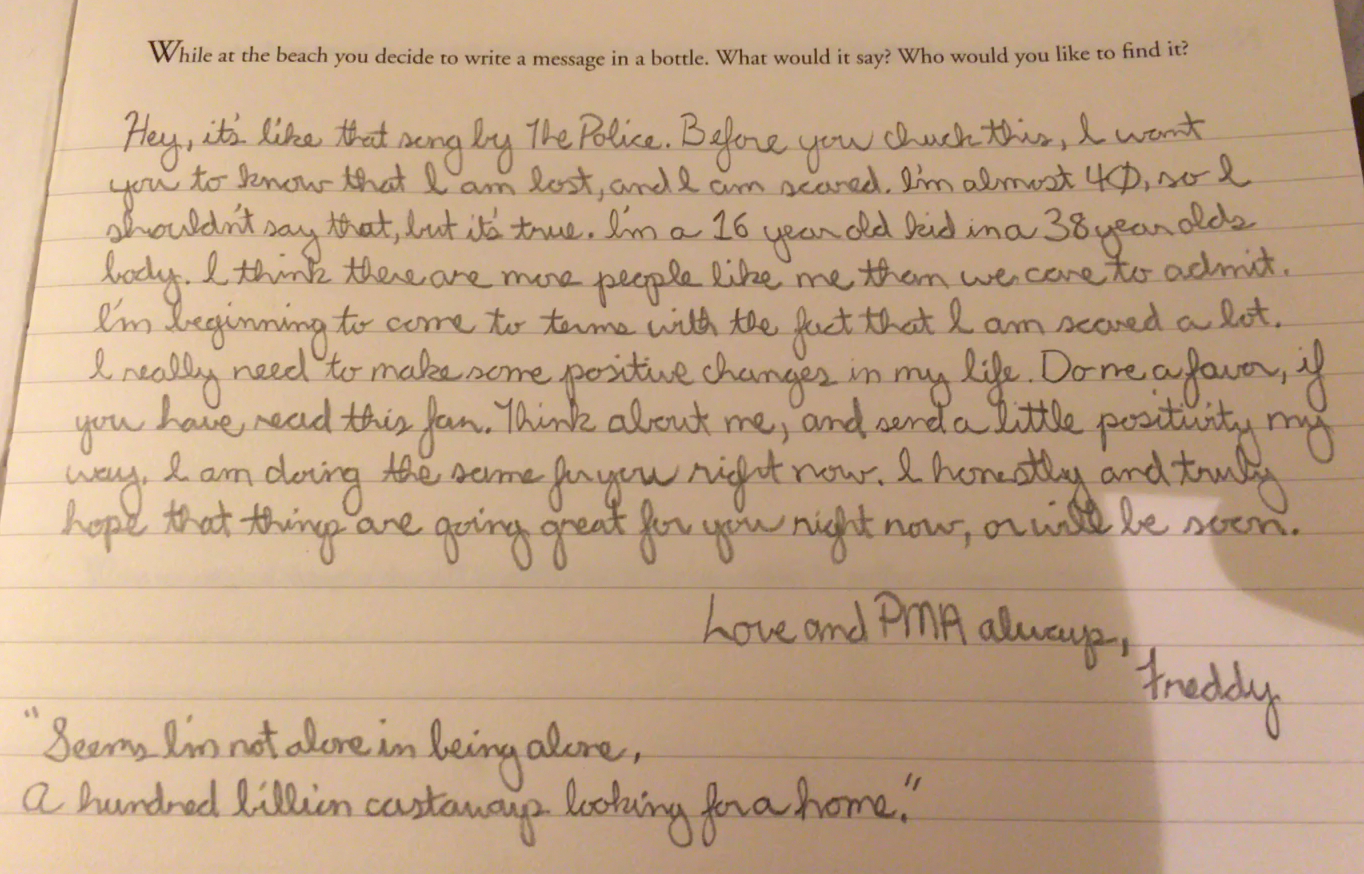 While at the beach you decide to write a message in a bottle. What would it say? Who would you like to find it?
Hey, it's like that song by The Police. Before you chuck this, I want
you to know that I am lost, and I am scared. I'm almost 40, so I
shouldn't say that, but it's true. I'm a 16 year old kid in a 38 year olds
body. I think there are more people like me than we care to admit.
I'm beginning to come to terms with the fact that I am scared a lot.
I really need to make some positive changes in my life. Do me a favor, if
you have read this far. Think about me, and send a little positivity my
way. I am doing the same for you right now. I honestly and truly
hope that things are going great for you right now, or will be soon.
Love and PMA always,
Freddy
"Seems I'm not alone in being alone,
A hundred billion castaways looking for a home."